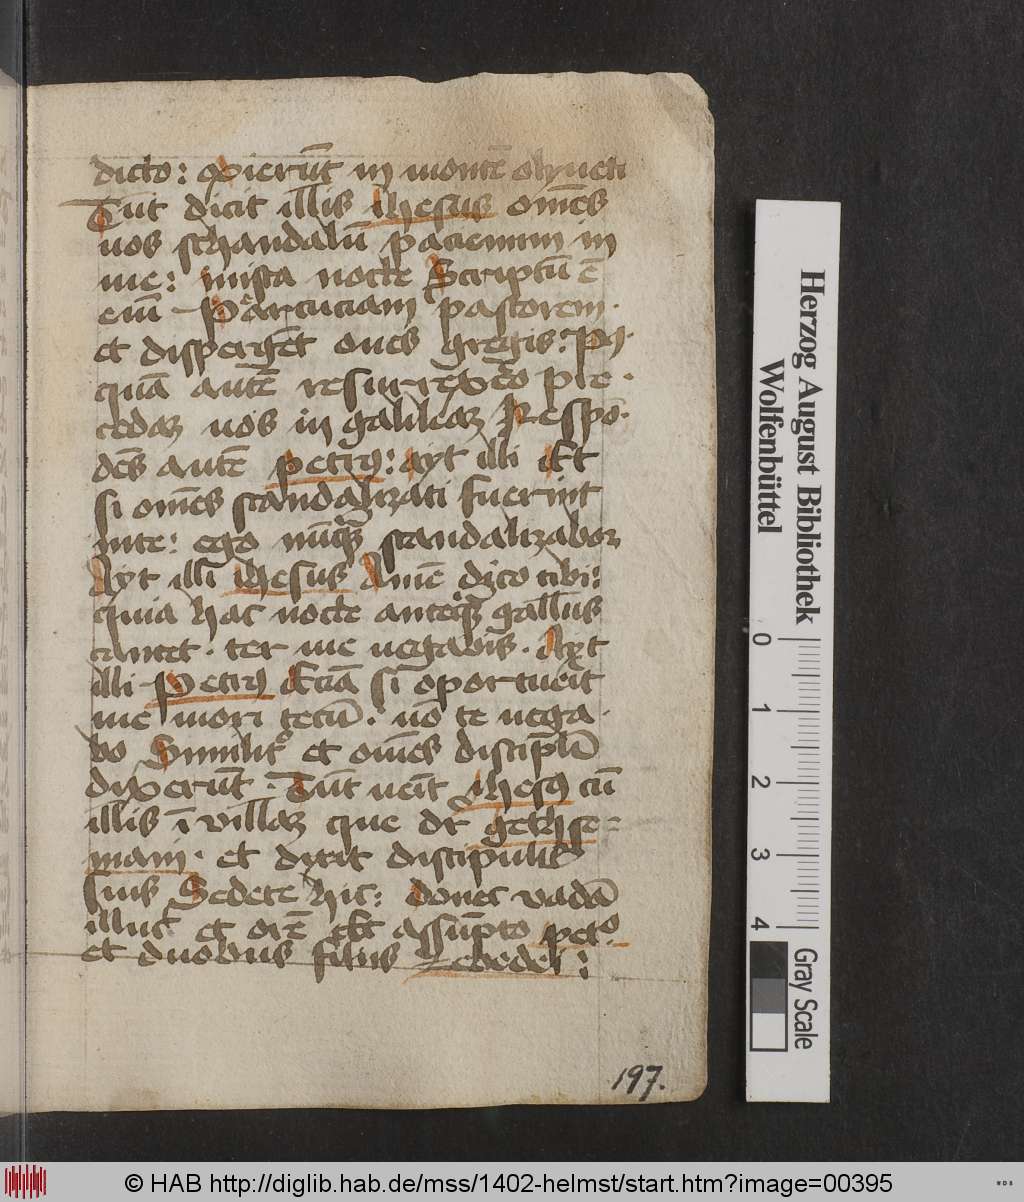 dicto: exierūt in montē oliueti
Tūc dicit illis ihesus om̄es
uos schandalū paciemini in
me: inista nocte Scriptū ē
eni Percuciam pastorem.
et dispergēt oues gregis: Pꝰ
quā autē resurrexero pre
cedaꝫ uos in galileaꝫ Respō
dēs autē petrꝰ: ayt illi Et
si om̄es scandalizati fuerint
inte: ego nūqꝫ scandalizabor
Ayt illi ihesus Amē dico tibi:
quia hac nocte anteqꝫ gallus
cantet. ter me negabis. Ayt
illi Petrꝰ Etiā si oportueit
me mori tecū. nō te nega
bo Similit᷑ et om̄es discipli
dixerūt. Tūc ueīt ihesꝰ cū
illis ī villaꝫ que dr̄ gethse=
mani. et dixit discipulis
suis Sedete hic: donec vadā
illuc et orē Et assūpto peto
et duobus filiis Zebedei:
197.
Herzog August Bibliothek
Wolfenbüttel
0 1 2 3 4
Gray Scale
© HAB http://diglib.hab.de/mss/1402-helmst/start.htm?image=00395